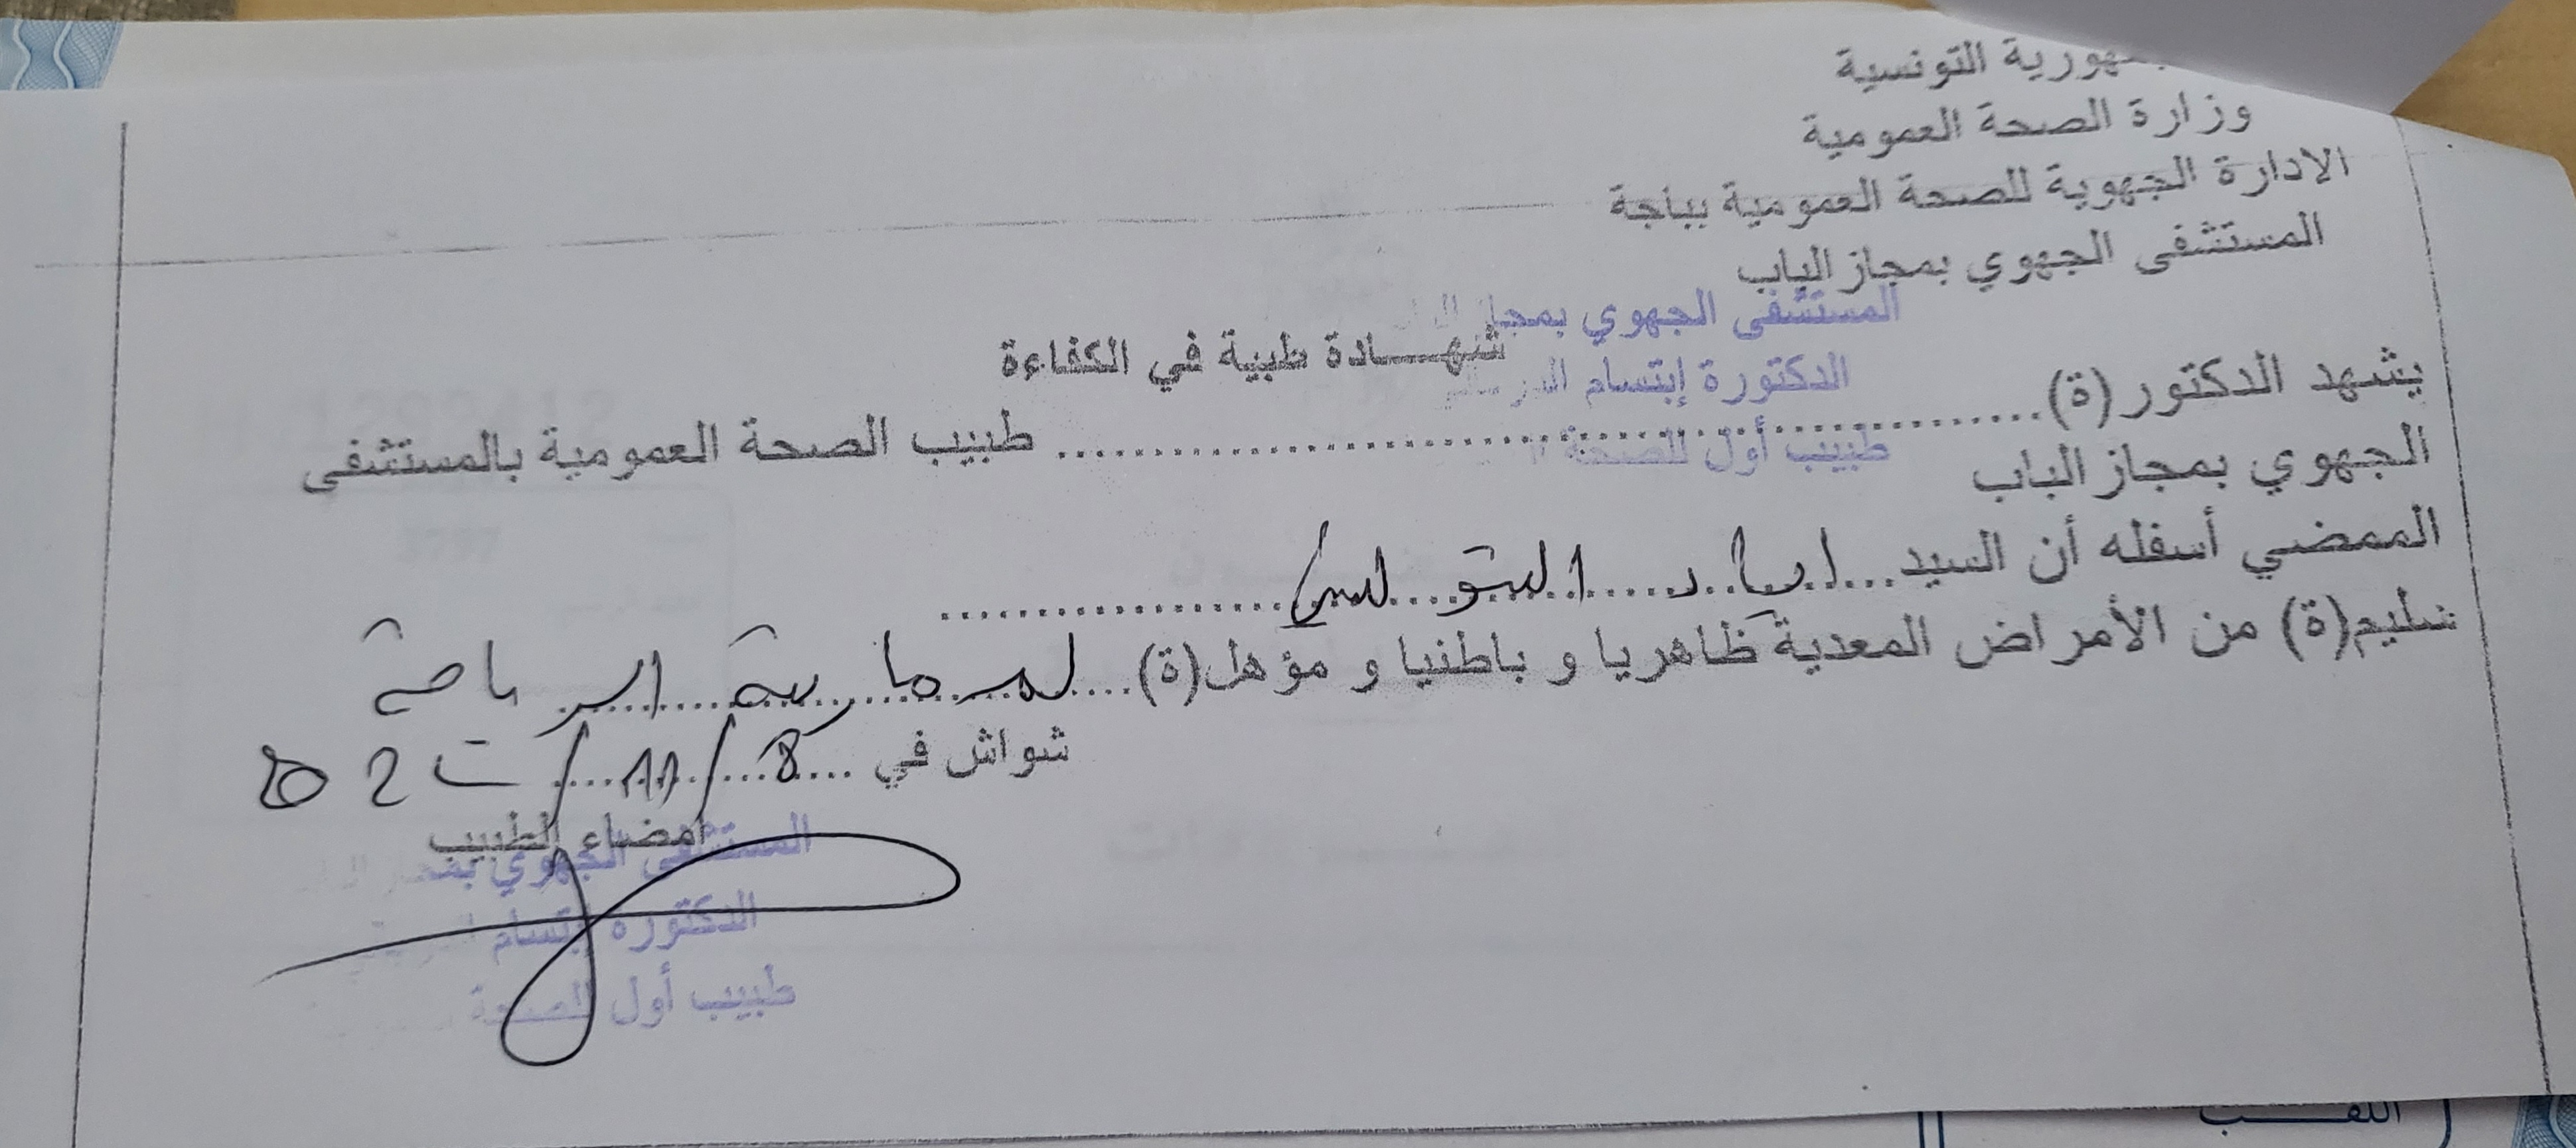 الجمهورية التونسية
وزارة الصحة العمومية
الادارة الجهوية للصحة العمومية بباجة
المستشفى الجهوي بمجاز الباب
المستشفى الجهوي بمجاز
شهـــادة طبية في الكفاءة
الدكتورة إبتسام
يشهد الدكتور (ة).......................................... طبيب الصحة العمومية بالمستشفى
طبيب أول للصحة
الجهوي بمجاز الباب
الممضي أسفله أن السيد...
سليم(ة) من الأمراض المعدية ظاهريا و باطنيا و مؤهل(ة)... لممارسة الرياضة
شواش في ... 8/11/
امضاء الطبيب
المستشفى الجهوي بمجاز
الدكتورة إبتسام
طبيب أول للصحة
اللقــب